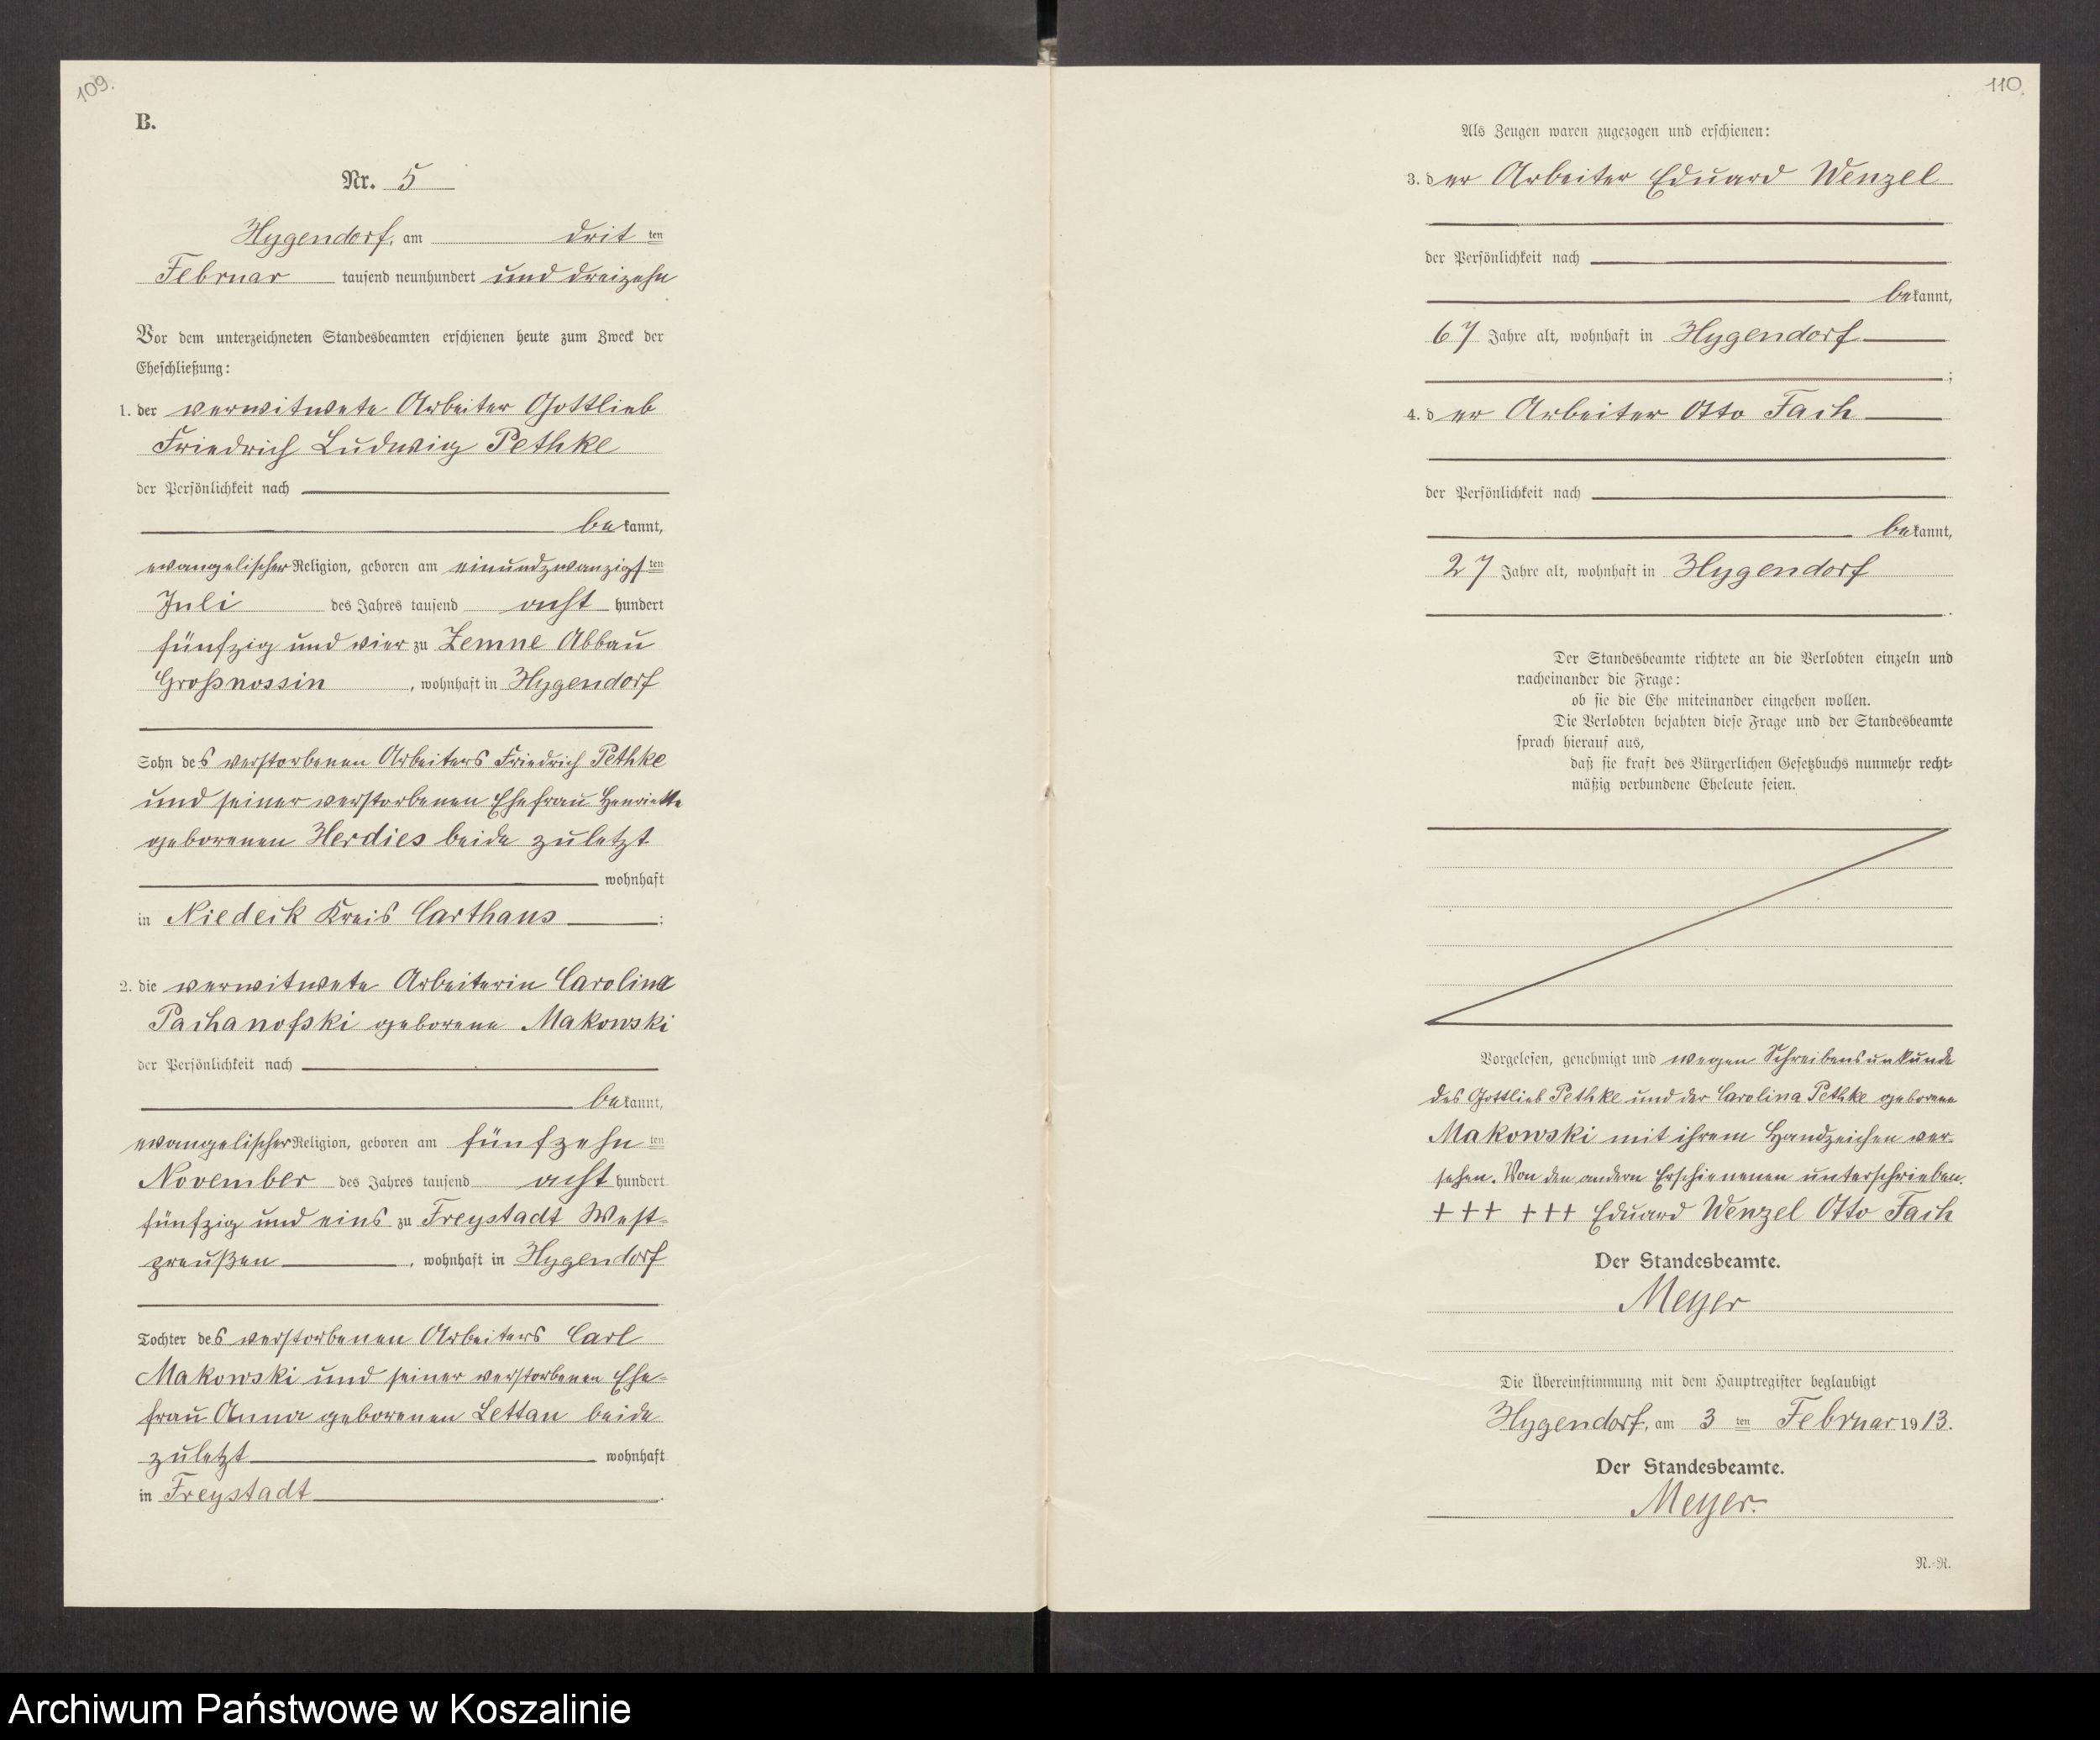 109.
B.
Nr. 5
Hygendorf, am drit ten
Februar tausend neunhundert und dreizehn
Vor dem unterzeichneten Standesbeamten erschienen heute zum Zweck der
Eheschließung:
1. der verwitwete Arbeiter Gottlieb
Friedrich Ludwig Pethke
der Persönlichkeit nach
bekannt,
evangelischer Religion, geboren am einundzwanzigsten
Juli des Jahres tausend acht hundert
fünfzig und vier zu Zemne Abbau
Großnossin, wohnhaft in Hygendorf
Sohn des verstorbenen Arbeiters Friedrich Pethke
und seiner verstorbenen Ehefrau Henriette
geborenen Herdies beide zuletzt
wohnhaft
in Niedeck Kreis Carthaus;
2. die verwitwete Arbeiterin Carolina
Pachanofski geborene Makowski
der Persönlichkeit nach
bekannt,
evangelischer Religion, geboren am fünfzehn ten
November des Jahres tausend acht hundert
fünfzig und eins zu Freystadt West-
preußen, wohnhaft in Hygendorf
Tochter des verstorbenen Arbeiters Carl
Makowski und seiner verstorbenen Ehe-
frau Anna geborenen Lettau beide
zuletzt wohnhaft
in Freystadt.
110.
Als Zeugen waren zugezogen und erschienen:
3. der Arbeiter Eduard Wenzel
der Persönlichkeit nach
bekannt,
67 Jahre alt, wohnhaft in Hygendorf
;
4. der Arbeiter Otto Fach
der Persönlichkeit nach
bekannt,
27 Jahre alt, wohnhaft in Hygendorf
.
Der Standesbeamte richtete an die Verlobten einzeln und
nacheinander die Frage:
ob sie die Ehe miteinander eingehen wollen.
Die Verlobten bejahten diese Frage und der Standesbeamte
sprach hierauf aus,
daß sie kraft des Bürgerlichen Gesetzbuchs nunmehr recht-
mäßig verbundene Eheleute seien.
Vorgelesen, genehmigt und wegen Schreibensunkunde
des Gottlieb Pethke und der Carolina Pethke geborene
Makowski mit ihrem Handzeichen ver-
sehen. Von den andern Erschienenen unterschrieben.
+++ +++ Eduard Wenzel Otto Fach
Der Standesbeamte.
Meyer
Die Übereinstimmung mit dem Hauptregister beglaubigt
Hygendorf, am 3 ten Februar 1913.
Der Standesbeamte.
Meyer.
N.-R.
Archiwum Państwowe w Koszalinie